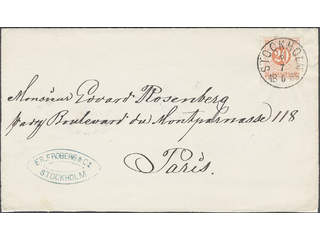 STOCKHOLM
7
Monsieur Edvard Rosenberg
Boulevard du Montparnasse 118
Paris.
FR. FRÖBERG & Co
STOCKHOLM